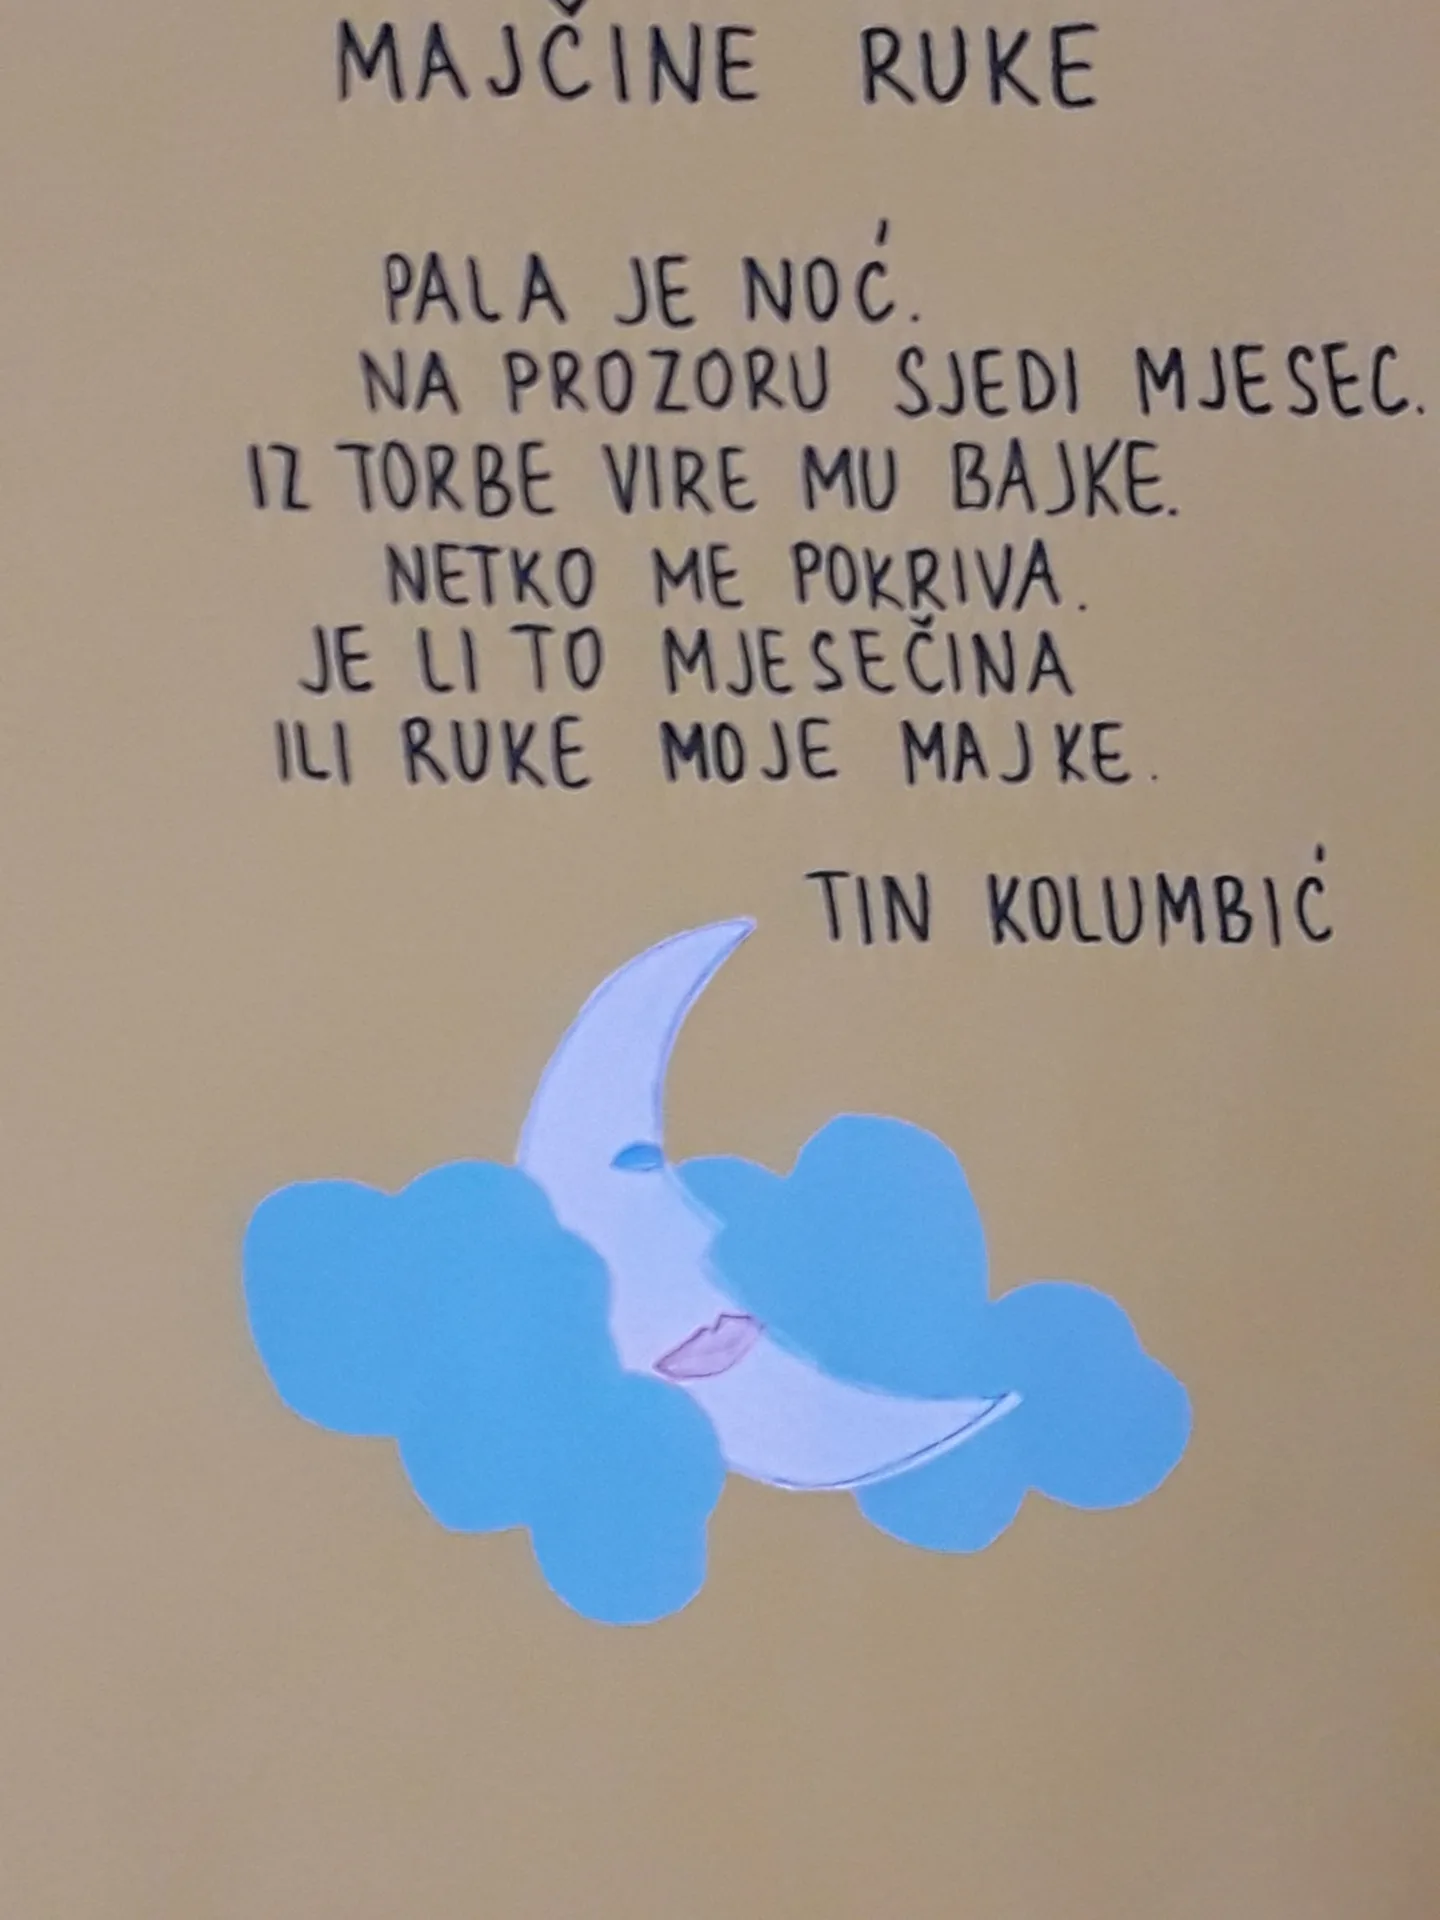 MAJČINE RUKE
PALA JE NOĆ.
NA PROZORU SJEDI MJESEC.
IZ TORBE VIRE MU BAJKE.
NETKO ME POKRIVA.
JE LI TO MJESEČINA
ILI RUKE MOJE MAJKE.
TIN KOLUMBIĆ